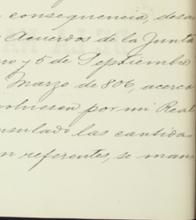 consequencia, dese
Acuerdos de la Junta
ro y 6 de Septiembre
Marzo de 806, acerca
por mi Real
nsulado las cantida
n referentes, se man